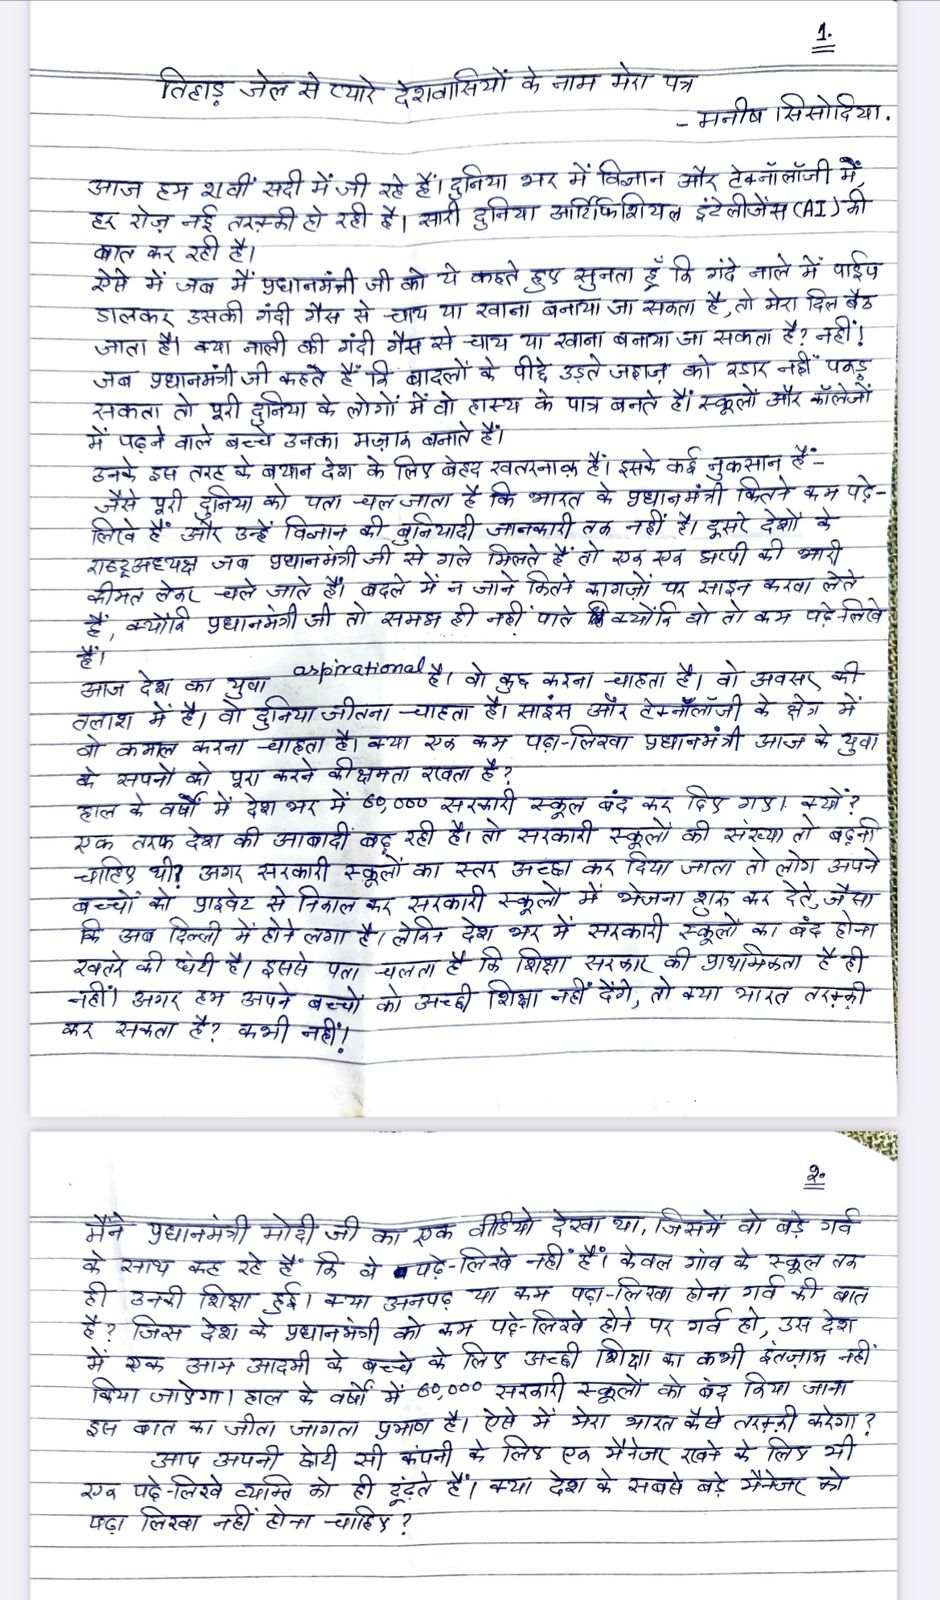 1.
तिहाड़ जेल से प्यारे देशवासियों के नाम मेरा पत्र
- मनीष सिसोदिया.
आज हम 21वीं सदी में जी रहे हैं। दुनिया भर में विज्ञान और टेक्नॉलॉजी में,
हर रोज़ नई तरक़्क़ी हो रही है। सारी दुनिया आर्टिफिशियल इंटेलीजेंस (AI) की
बात कर रही है।
ऐसे में जब मैं प्रधानमंत्री जी को ये कहते हुए सुनता हूँ कि गंदे नाले में पाईप
डालकर उसकी गंदी गैस से चाय या खाना बनाया जा सकता है, तो मेरा दिल बैठ
जाता है। क्या नाली की गंदी गैस से चाय या खाना बनाया जा सकता है? नहीं!
जब प्रधानमंत्री जी कहते हैं कि बादलों के पीछे उड़ते जहाज़ को रडार नहीं पकड़
सकता तो पूरी दुनिया के लोगों में वो हास्य के पात्र बनते हैं। स्कूलों और कॉलेजों
में पढ़ने वाले बच्चे उनका मज़ाक बनाते हैं।
उनके इस तरह के बयान देश के लिए बेहद खतरनाक़ हैं। इसके कई नुकसान हैं-
जैसे पूरी दुनिया को पता चल जाता है कि भारत के प्रधानमंत्री कितने कम पढ़े-
लिखे हैं और उन्हें विज्ञान की बुनियादी जानकारी तक नहीं है। दूसरे देशों के
राष्ट्रअध्यक्ष जब प्रधानमंत्री जी से गले मिलते हैं तो एक एक झप्पी की भारी
कीमत लेकर चले जाते हैं। बदले में न जाने कितने कागजों पर साइन करवा लेते
हैं, क्योंकि प्रधानमंत्री जी तो समझ ही नहीं पाते क्योंकि वो तो कम पढ़े-लिखे
हैं।
आज देश का युवा aspirational है। वो कुछ करना चाहता है। वो अवसर की
तलाश में है। वो दुनिया जीतना चाहता है। साइंस और टेक्नॉलॉजी के क्षेत्र में
वो कमाल करना चाहता है। क्या एक कम पढ़ा-लिखा प्रधानमंत्री आज के युवा
के सपनों को पूरा करने की क्षमता रखता है?
हाल के वर्षों में देश भर में 60,000 सरकारी स्कूल बंद कर दिए गए। क्यों?
एक तरफ देश की आबादी बढ़ रही है। तो सरकारी स्कूलों की संख्या तो बढ़नी
चाहिए थी? अगर सरकारी स्कूलों का स्तर अच्छा कर दिया जाता तो लोग अपने
बच्चों को प्राइवेट से निकाल कर सरकारी स्कूलों में भेजना शुरु कर देते, जैसा
कि अब दिल्ली में होने लगा है। लेकिन देश भर में सरकारी स्कूलों का बंद होना
खतरे की घंटी है। इससे पता चलता है कि शिक्षा सरकार की प्राथमिकता है ही
नहीं। अगर हम अपने बच्चो को अच्छी शिक्षा नहीं देंगे, तो क्या भारत तरक़्क़ी
कर सकता है? कभी नहीं!
2.
मैंने प्रधानमंत्री मोदी जी का एक वीडियो देखा था, जिसमें वो बड़े गर्व
के साथ कह रहे हैं कि वे पढ़े-लिखे नहीं हैं। केवल गांव के स्कूल तक
ही उनकी शिक्षा हुई। क्या अनपढ़ या कम पढ़ा-लिखा होना गर्व की बात
है? जिस देश के प्रधानमंत्री को कम पढ़े-लिखे होने पर गर्व हो, उस देश
में एक आम आदमी के बच्चे के लिए अच्छी शिक्षा का कभी इंतजाम नहीं
किया जाऐगा। हाल के वर्षों में 60,000 सरकारी स्कूलों को बंद किया जाना
इस बात का जीता जागता प्रमाण है। ऐसे में मेरा भारत कैसे तरक़्क़ी करेगा?
आप अपनी छोटी सी कंपनी के लिए एक मैनेजर रखने के लिए भी
एक पढ़े-लिखे व्यक्ति को ही ढूंढ़ते हैं। क्या देश के सबसे बड़े मैनेजर को
पढ़ा लिखा नहीं होना चाहिए?